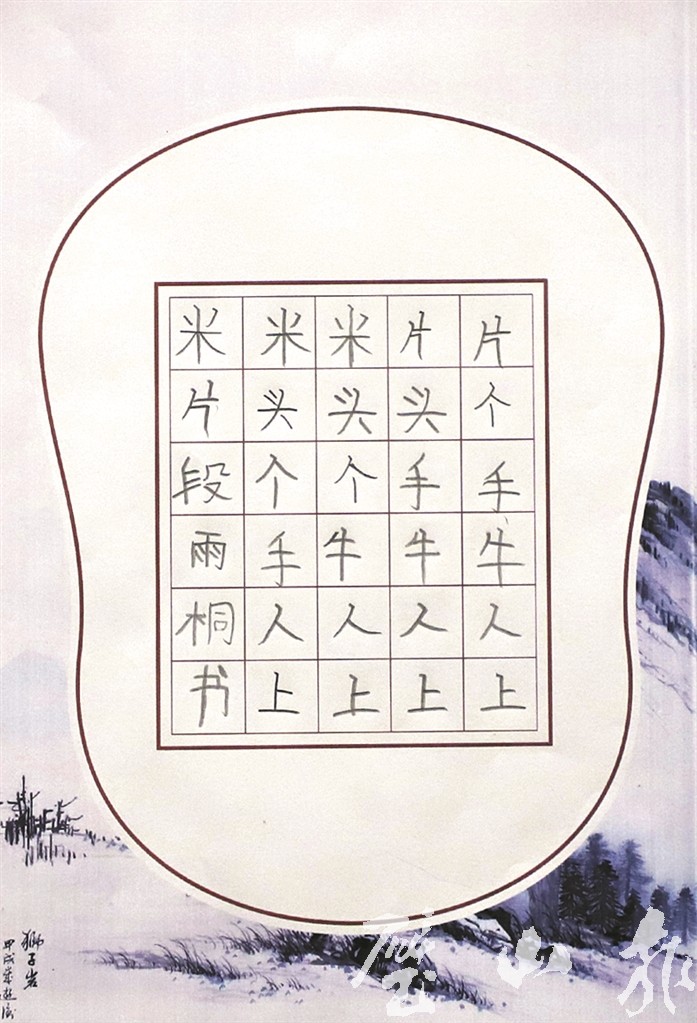 米米米片片
片头头头个
段个个手手
雨手牛牛牛
桐人人人人
书上上上上
獅子岩
璧山报